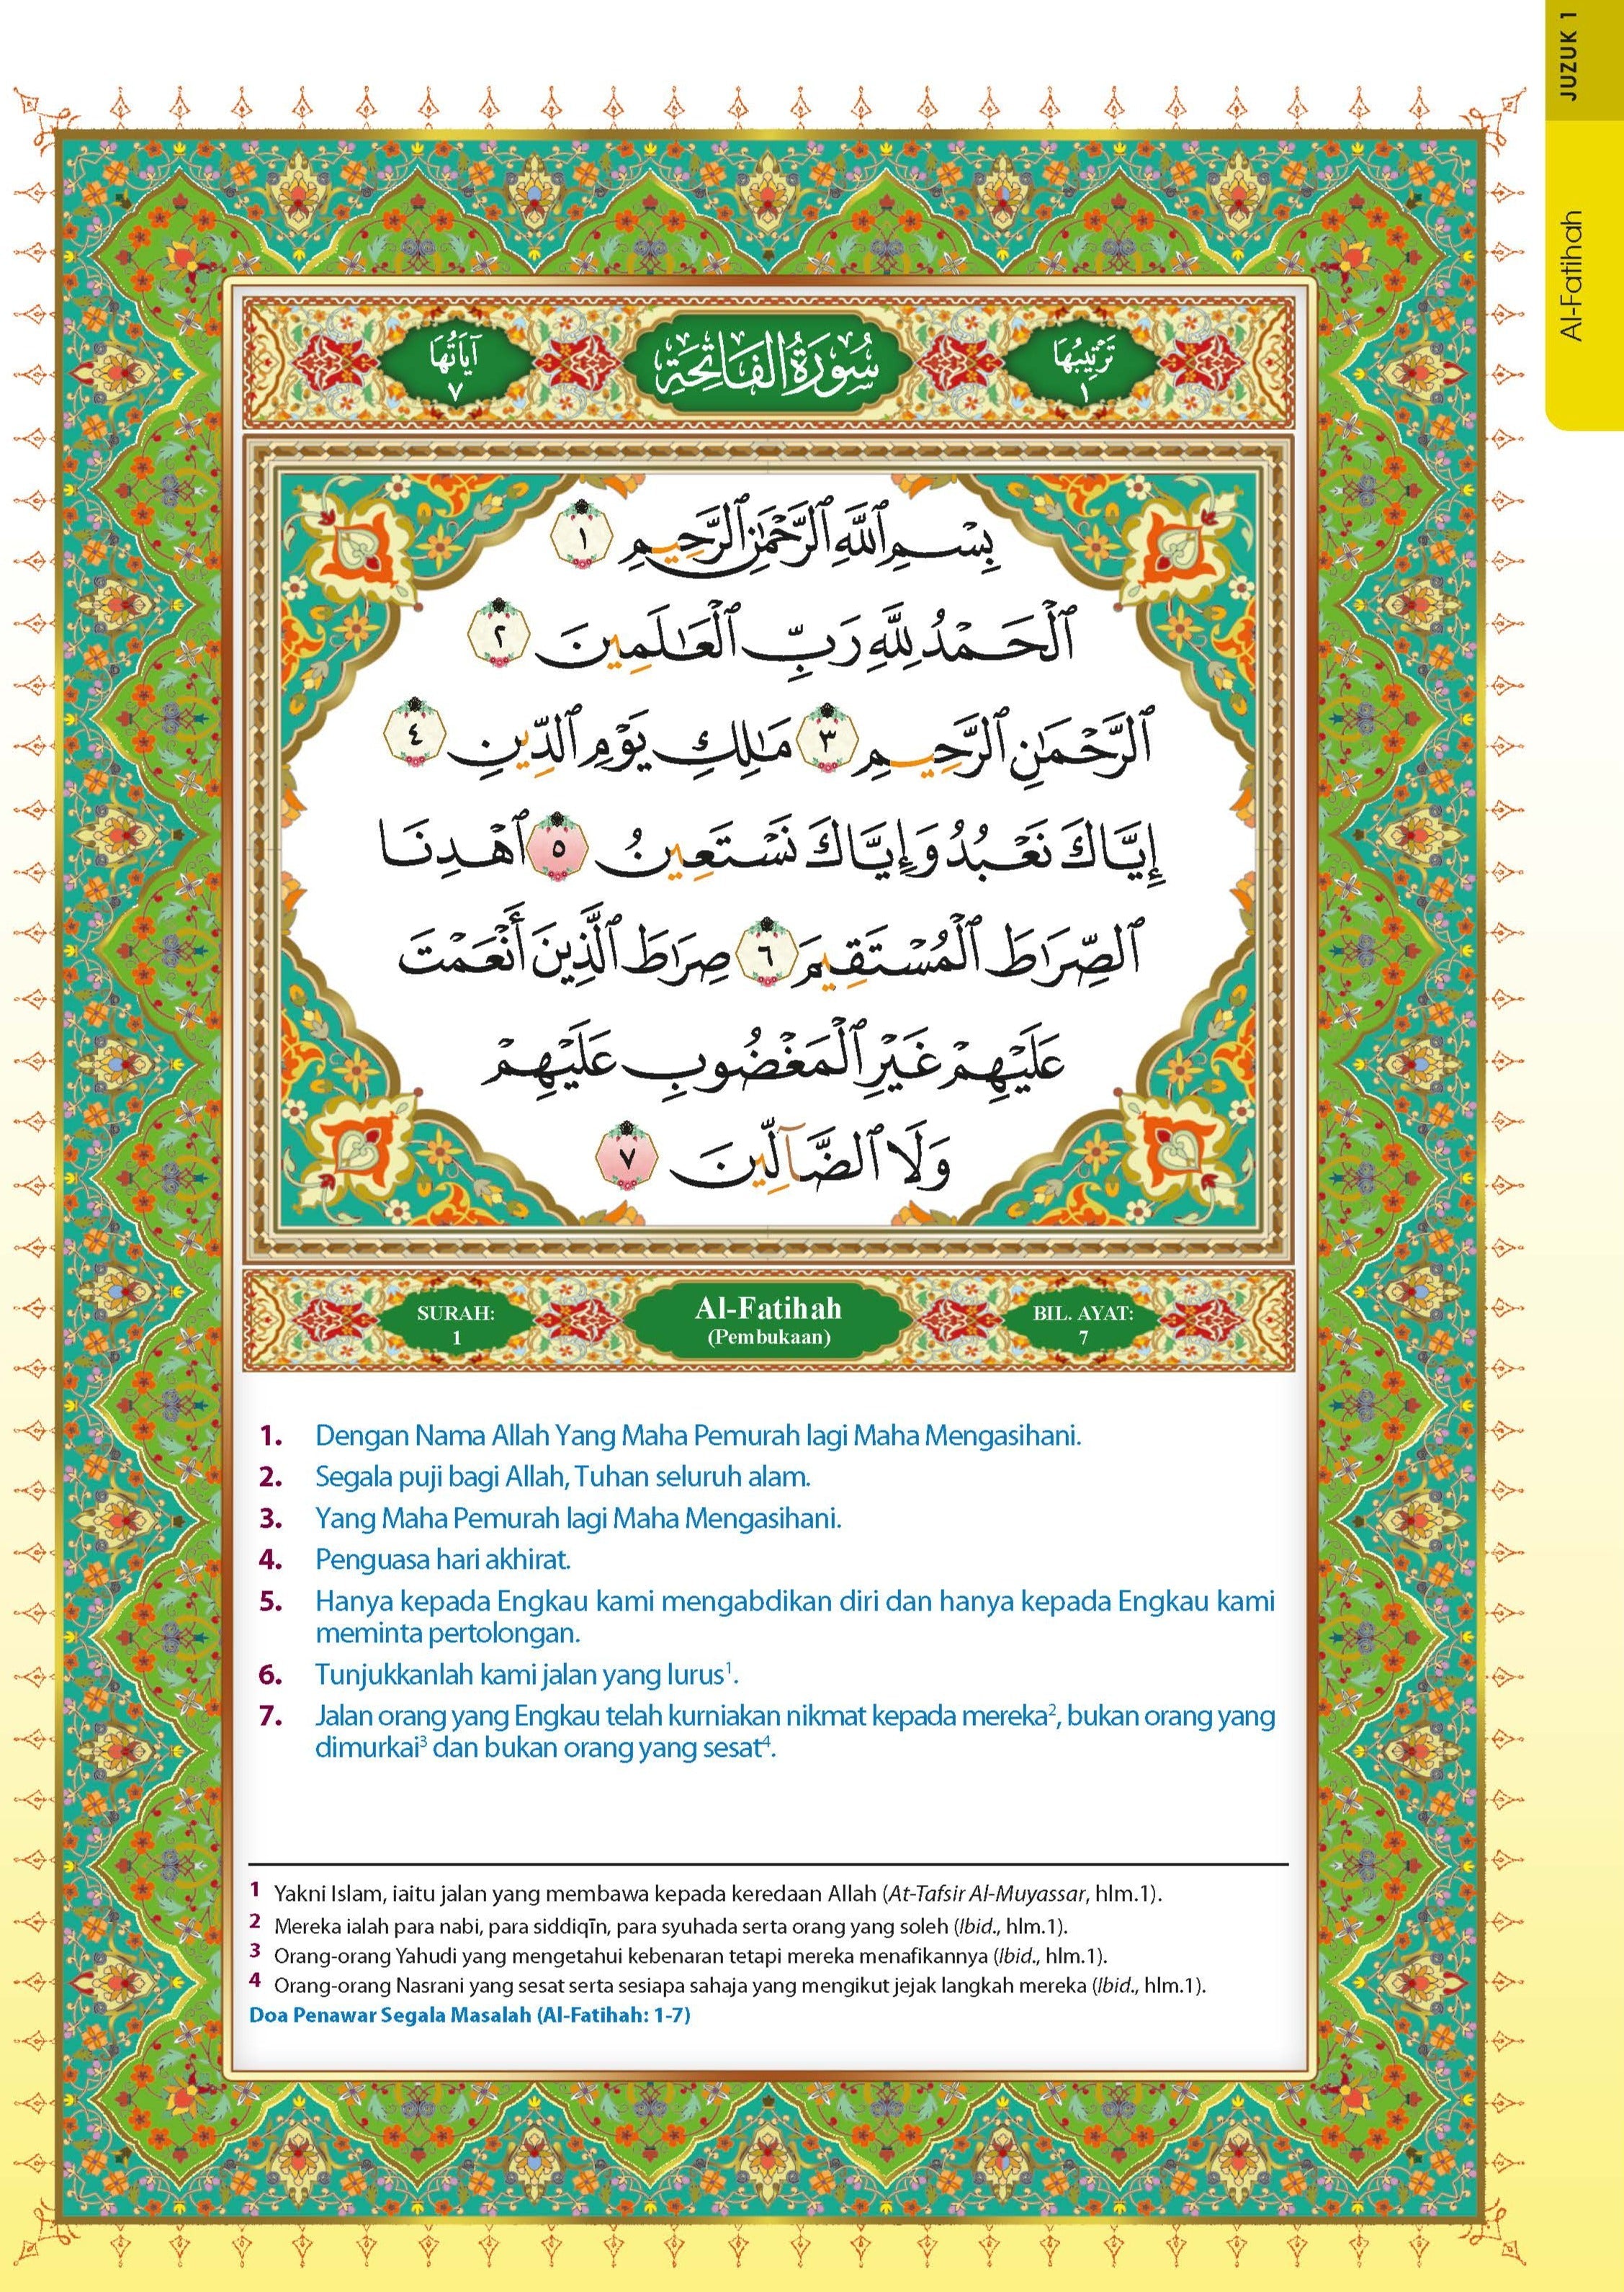 JUZUK 1
Al-Fatihah
تَرْتِيبُهَا
١
سُورَةُ الفَاتِحَةِ
آيَاتُهَا
٧
بِسْمِ ٱللَّهِ ٱلرَّحْمَٰنِ ٱلرَّحِيمِ ١
ٱلْحَمْدُ لِلَّهِ رَبِّ ٱلْعَٰلَمِينَ ٢
ٱلرَّحْمَٰنِ ٱلرَّحِيمِ ٣ مَٰلِكِ يَوْمِ ٱلدِّينِ ٤
إِيَّاكَ نَعْبُدُ وَإِيَّاكَ نَسْتَعِينُ ٥ ٱهْدِنَا
ٱلصِّرَٰطَ ٱلْمُسْتَقِيمَ ٦ صِرَٰطَ ٱلَّذِينَ أَنْعَمْتَ
عَلَيْهِمْ غَيْرِ ٱلْمَغْضُوبِ عَلَيْهِمْ
وَلَا ٱلضَّآلِّينَ ٧
SURAH:
1
Al-Fatihah
(Pembukaan)
BIL. AYAT:
7
1. Dengan Nama Allah Yang Maha Pemurah lagi Maha Mengasihani.
2. Segala puji bagi Allah, Tuhan seluruh alam.
3. Yang Maha Pemurah lagi Maha Mengasihani.
4. Penguasa hari akhirat.
5. Hanya kepada Engkau kami mengabdikan diri dan hanya kepada Engkau kami
meminta pertolongan.
6. Tunjukkanlah kami jalan yang lurus¹.
7. Jalan orang yang Engkau telah kurniakan nikmat kepada mereka², bukan orang yang
dimurkai³ dan bukan orang yang sesat⁴.
1 Yakni Islam, iaitu jalan yang membawa kepada keredaan Allah (At-Tafsir Al-Muyassar, hlm.1).
2 Mereka ialah para nabi, para siddiqīn, para syuhada serta orang yang soleh (Ibid., hlm.1).
3 Orang-orang Yahudi yang mengetahui kebenaran tetapi mereka menafikannya (Ibid., hlm.1).
4 Orang-orang Nasrani yang sesat serta sesiapa sahaja yang mengikut jejak langkah mereka (Ibid., hlm.1).
Doa Penawar Segala Masalah (Al-Fatihah: 1-7)